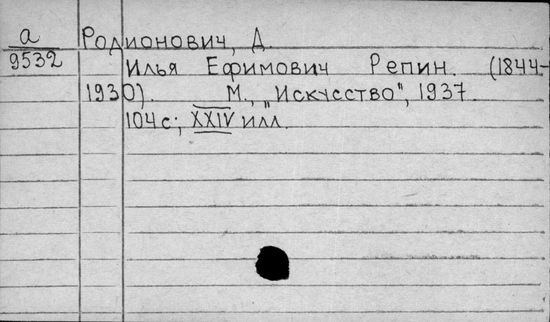 а Родионович, Д.
9532 Илья Ефимович Репин. (1844-
1930). М., „Искусство", 1937.
104с; XXIV илл.